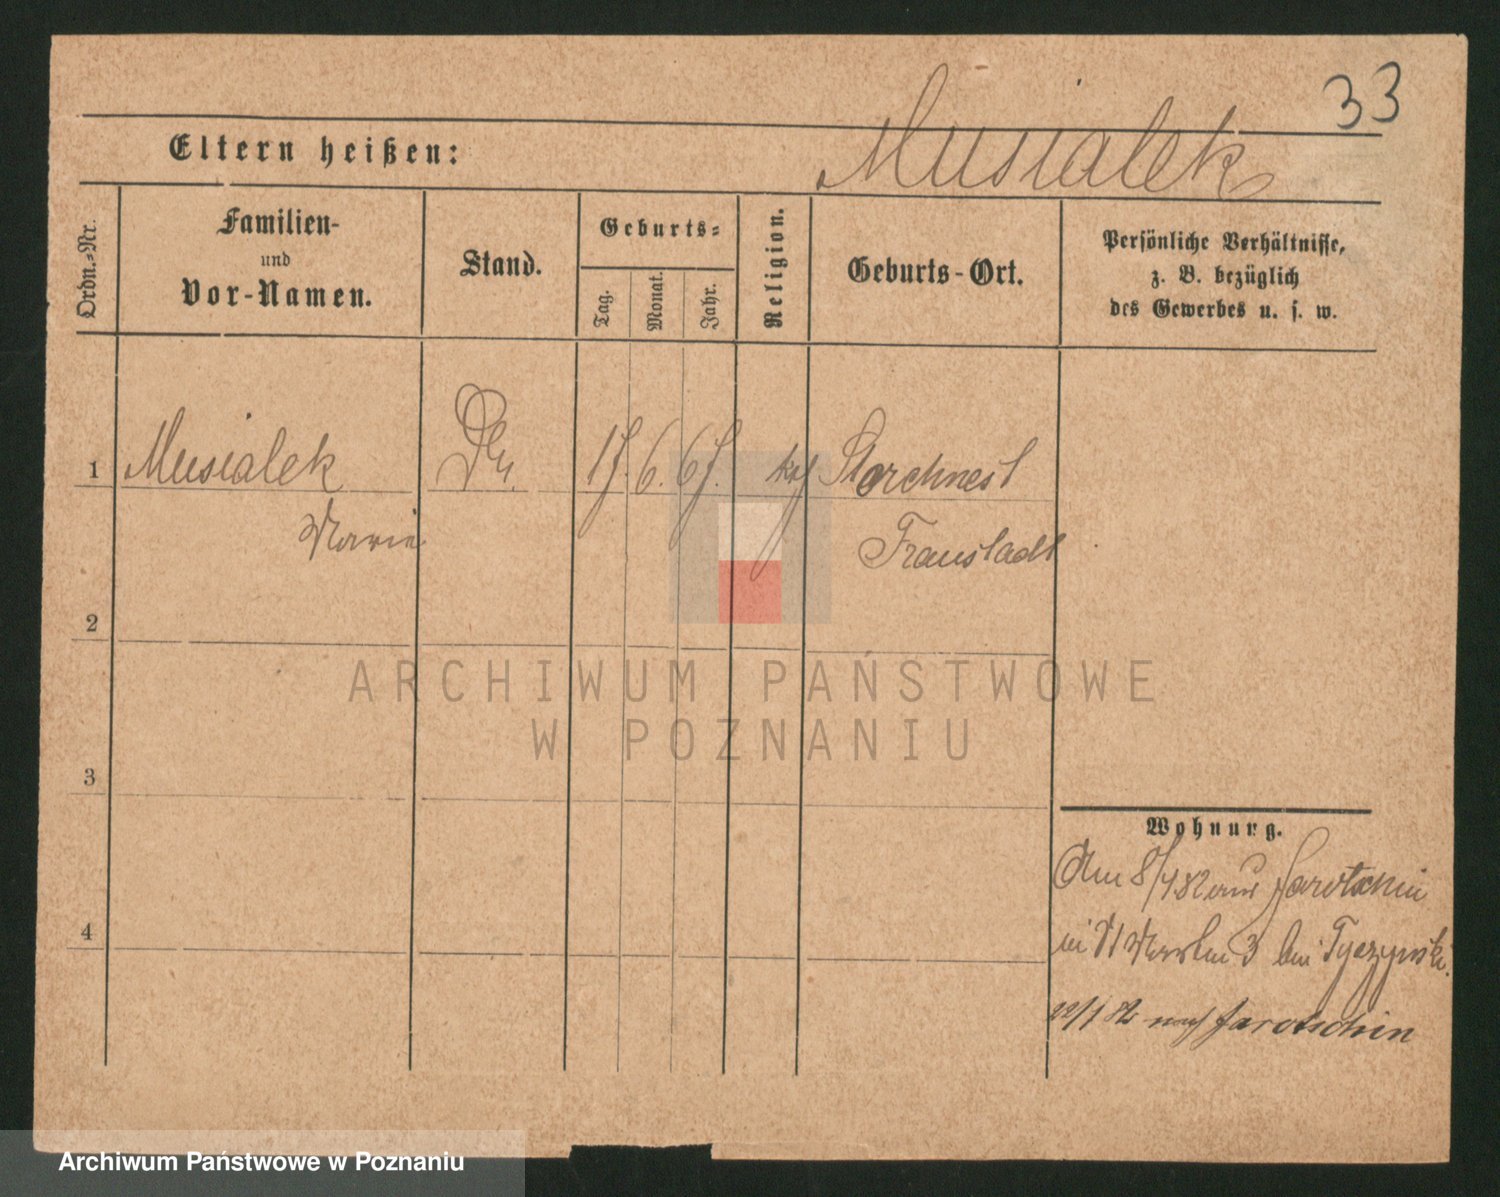 33
Musialek
Eltern heißen:
Ordn.-Nr.
Familien-
und
Vor-Namen.
Stand.
Geburts-
Tag.
Monat.
Jahr.
Religion.
Geburts-Ort.
Persönliche Verhältnisse,
z. B. bezüglich
des Gewerbes u. s. w.
1 Musialek 17. 6. 67. kath Storchnest
Marie Fraustadt
2
3
4
Wohnung.
Am 8/1 82 aus Jarotschin
3 bei Tyczynski.
22/1 82 nach Jarotschin
ARCHIWUM PAŃSTWOWE
W POZNANIU
Archiwum Państwowe w Poznaniu